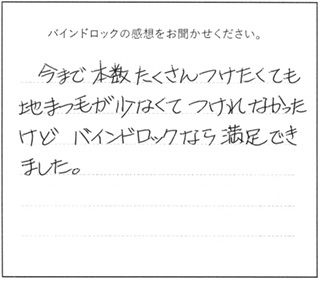 バインドロックの感想をお聞かせください。
今まで本数たくさんつけたくても
地まつ毛が少なくてつけれなかった
けど バインドロックなら満足でき
ました。